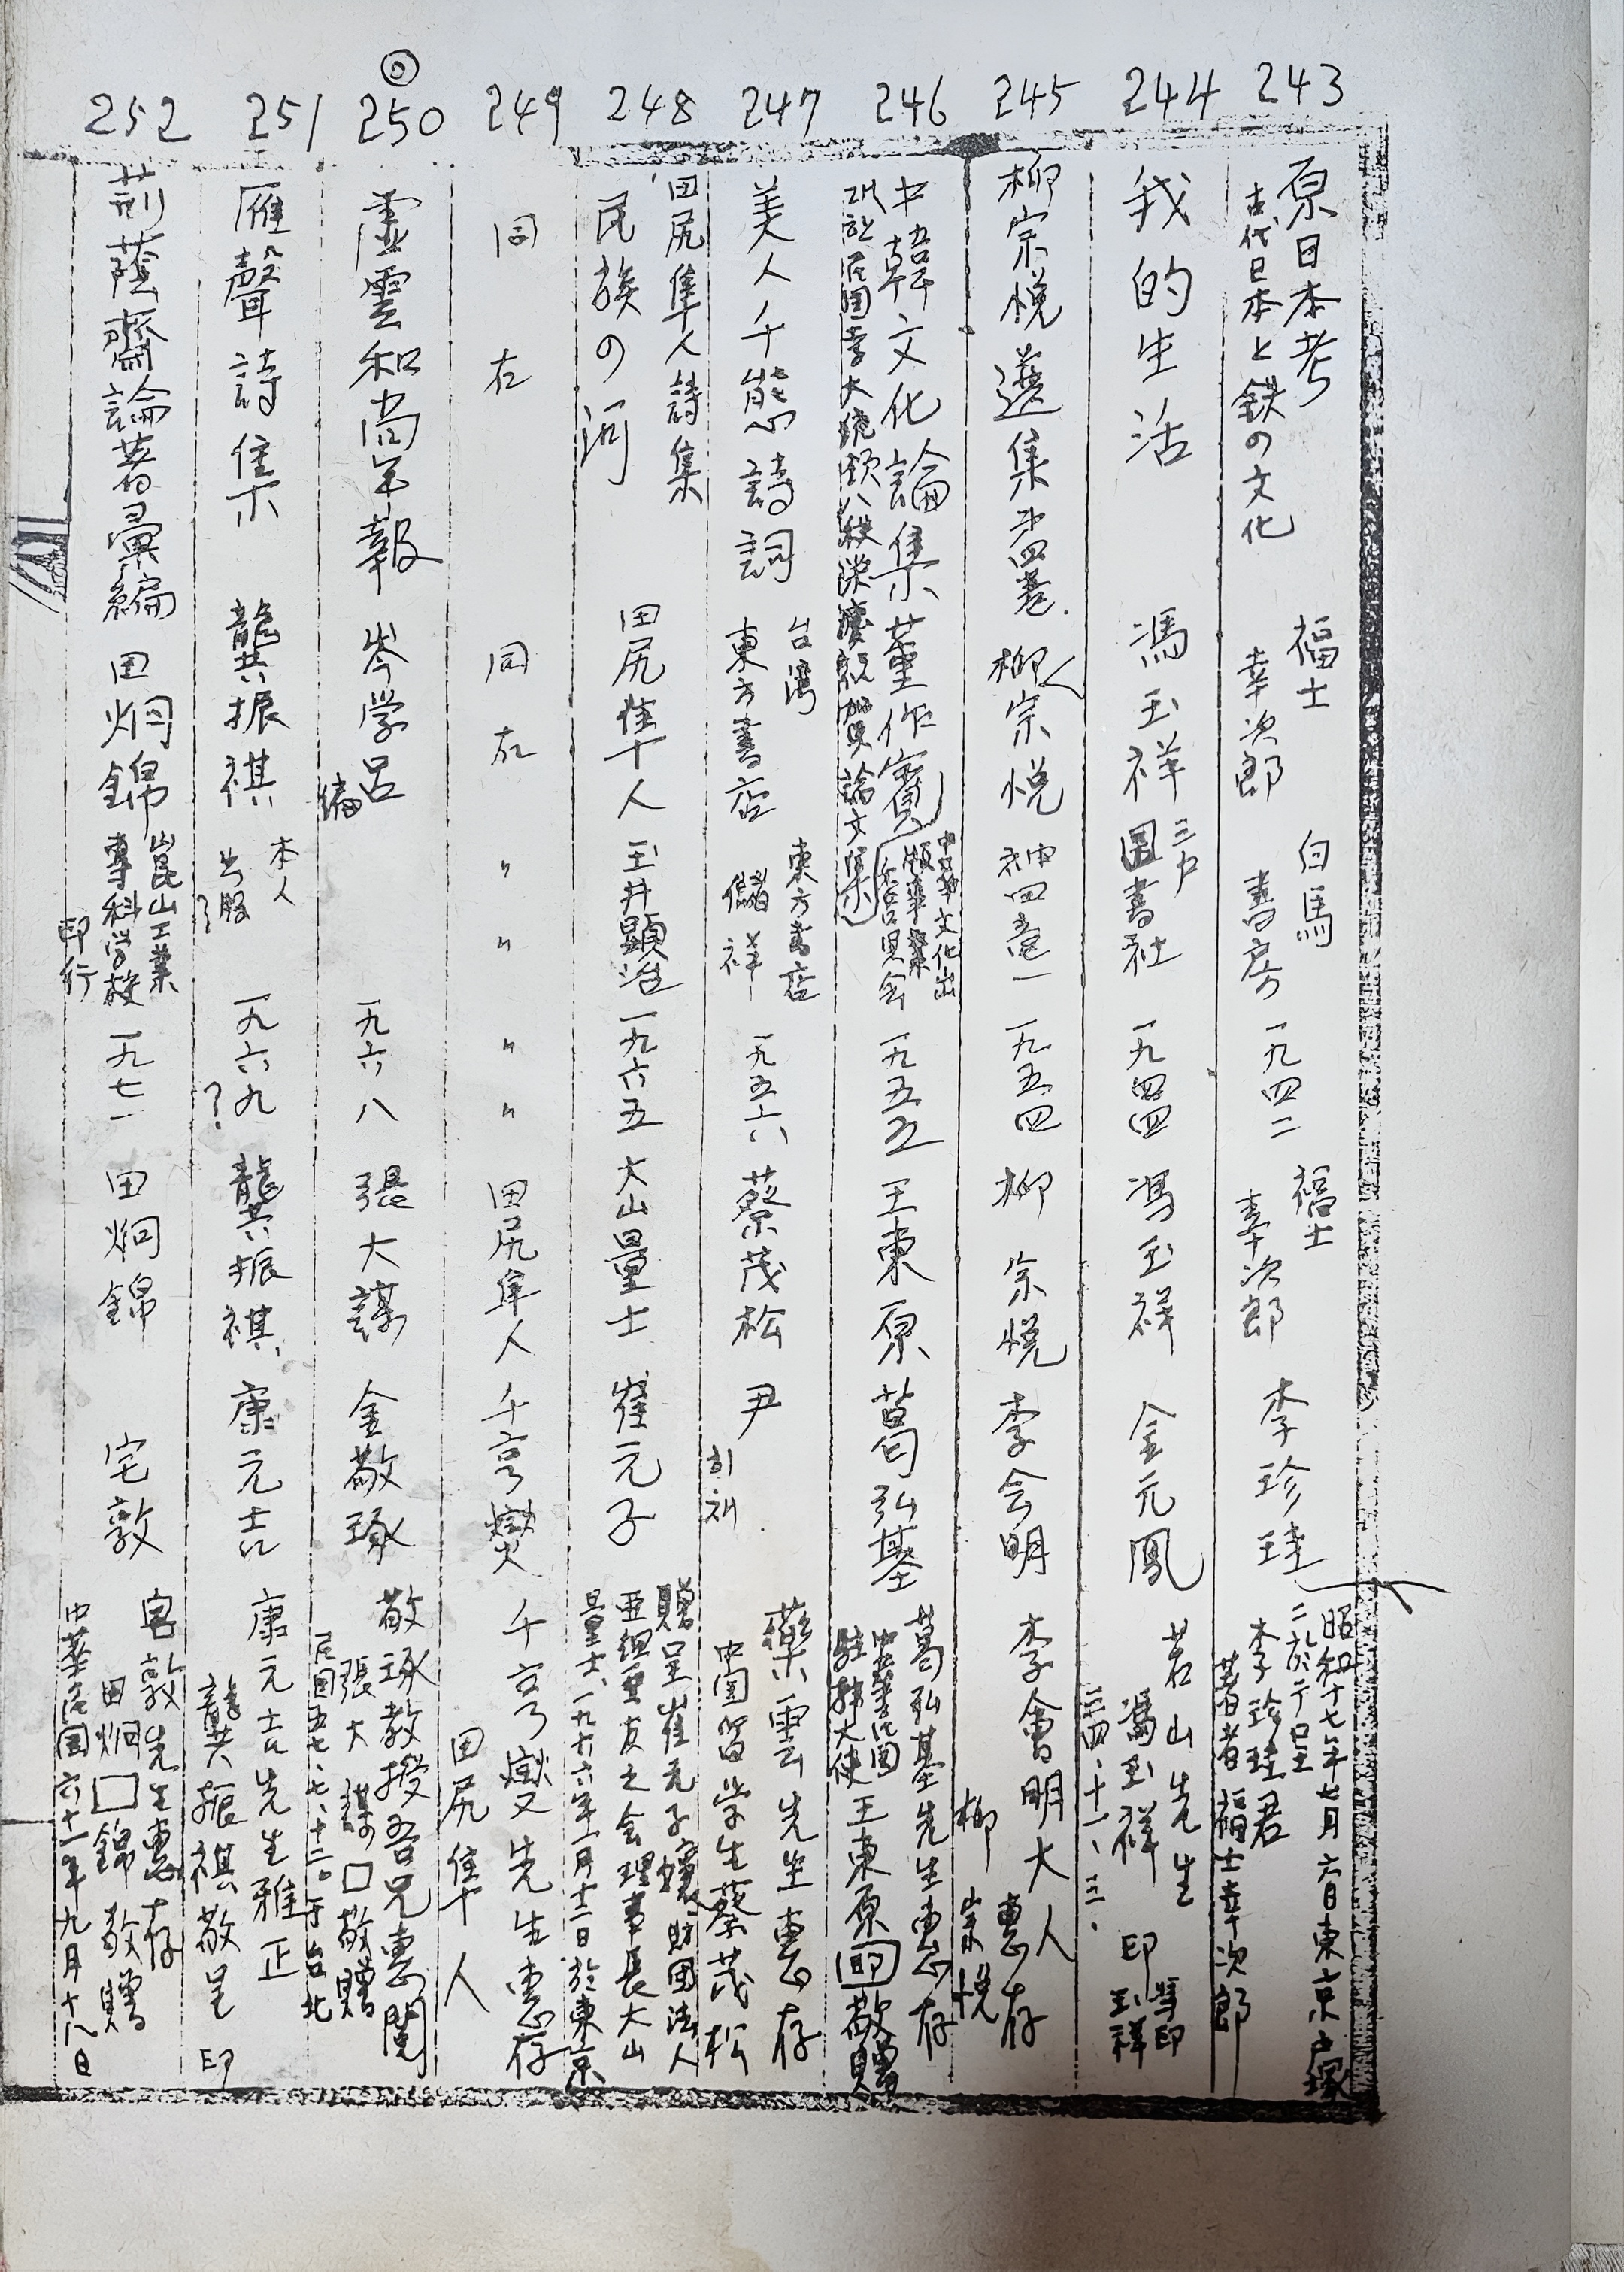 243
原日本考
古代日本と鉄の文化
福士
幸次郎
白馬
書房
一九四二
福士
幸次郎
李珍珪
昭和十七年七月六日東京戸塚
二於テ呈
李珍珪君
著者福士幸次郎
244
我的生活
馮玉祥
三户
図書社
一九四四
馮玉祥
金元鳳
若山先生
馮玉祥 印
馮印
玉祥
三四、十一、三.
245
柳宗悦選集第四巻.
柳宗悦
一九五四
柳宗悦
李会明
李會明大人
惠存
柳
宗悦
246
中韓文化論集
董作賓
中華文化出
版事業
委員会
一九五五
王東原
葛弘基
葛弘基先生惠存
中華民国
駐韓大使王東原 印 敬贈
247
美人千態詩詞
台湾
東方書店
東方書店
儲祥
一九五六
蔡茂松
尹
藥雲先生惠存
中国留学生蔡茂松
248
田尻隼人詩集
民族の河
田尻隼人
玉井顕治
一九六五
大山量士
崔元子
贈呈崔元子孃 財団法人
亜細亜友之会理事長大山
量士、一九六六年一月十二日於東京
249
同右
同右
〃 〃
〃 〃
田尻隼人
千亨燮
千亨燮先生惠存
田尻隼人
◎
250
虛雲和尚年報
岑学呂
編
一九六八
張大謀
金敬琢
敬琢教授吾兄惠閲
張大謀□敬贈
民国五七、七、十二。于台北
251
雁聲詩集
龔振祺
本人
出版
?
一九六九
?
龔振祺
康元吉
康元吉先生雅正
龔振祺敬呈 印
252
荊蔭齋論著彙編
田炯錦
崑山工業
專科学校
印行
一九七一
田炯錦
宅敦
宅敦先生惠存
田炯□錦敬贈
中華民国六十一年九月十八日